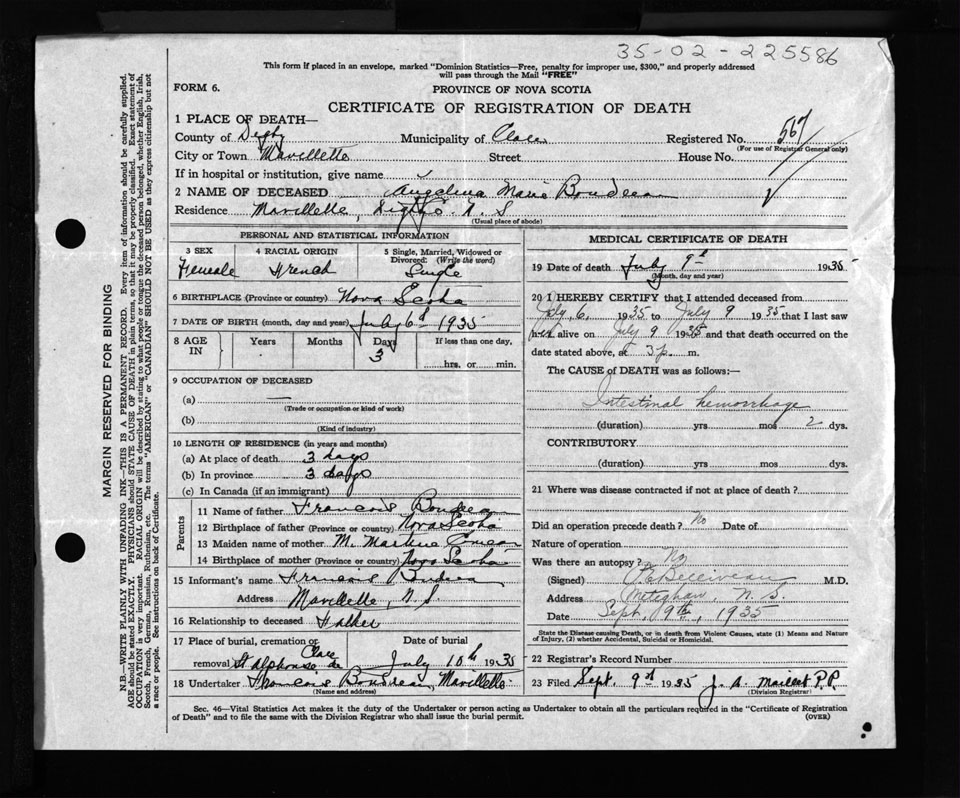 35-02-225586
This form if placed in an envelope, marked "Dominion Statistics—Free, penalty for improper use, $300," and properly addressed
will pass through the Mail "FREE"
FORM 6.
PROVINCE OF NOVA SCOTIA
CERTIFICATE OF REGISTRATION OF DEATH
1 PLACE OF DEATH—
County of Digby Municipality of Clare Registered No. 567
(For use of Registrar General only)
City or Town Mavillette Street House No.
If in hospital or institution, give name
2 NAME OF DECEASED Angelina Marie Boudreau
Residence Mavillette, Digby Co. N. S
(Usual place of abode)
PERSONAL AND STATISTICAL INFORMATION
3 SEX
Female
4 RACIAL ORIGIN
French
5 Single, Married, Widowed or
Divorced: (Write the word)
Single
6 BIRTHPLACE (Province or country) Nova Scotia
7 DATE OF BIRTH (month, day and year) July 6th 1935
8 AGE IN
Years Months Days If less than one day,
3 hrs. or min.
9 OCCUPATION OF DECEASED
(a) —
(Trade or occupation or kind of work)
(b)
(Kind of industry)
10 LENGTH OF RESIDENCE (in years and months)
(a) At place of death 3 days
(b) In province 3 days
(c) In Canada (if an immigrant)
Parents
11 Name of father Francois Boudreau
12 Birthplace of father (Province or country) Nova Scotia
13 Maiden name of mother M. Martine Comeau
14 Birthplace of mother (Province or country) Nova Scotia
15 Informant's name Francois Boudreau
Address Mavillette, N. S.
16 Relationship to deceased Father
17 Place of burial, cremation or removal St Alphonse de Clare
Date of burial
July 10th 1935
18 Undertaker Francois Boudreau, Mavillette
(Name and address)
MEDICAL CERTIFICATE OF DEATH
19 Date of death July 9th 1935
(Month, day and year)
20 I HEREBY CERTIFY that I attended deceased from
July 6, 1935 to July 9 1935 that I last saw
her alive on July 9 1935 and that death occurred on
date stated above, at 3 p. m.
The CAUSE of DEATH was as follows:—
Intestinal hemorrhage
(duration) yrs mos 2 dys.
CONTRIBUTORY
(duration) yrs. mos. dys.
21 Where was disease contracted if not at place of death?
Did an operation precede death? No Date of
Nature of operation
Was there an autopsy? No
(Signed) M.D.
Address Meteghan, N. S.
Date Sept. 9th, 1935
State the Disease causing Death, or in death from Violent Causes, state (1) Means and Nature
of Injury, (2) whether Accidental, Suicidal or Homicidal.
22 Registrar's Record Number
23 Filed Sept. 9th 1935 J. A. P.P.
(Division Registrar)
Sec. 46—Vital Statistics Act makes it the duty of the Undertaker or person acting as Undertaker to obtain all the particulars required in the "Certificate of Registration
of Death" and to file the same with the Division Registrar who shall issue the burial permit.
(OVER)
MARGIN RESERVED FOR BINDING
N.B.—WRITE PLAINLY WITH UNFADING INK—THIS IS A PERMANENT RECORD. Every item of information should be carefully supplied.
AGE should be stated EXACTLY. PHYSICIANS should STATE CAUSE OF DEATH in plain terms, so that it may be properly classified. Exact statement of
OCCUPATION is very important. RACIAL ORIGIN will be described by stating to what people or tongue the deceased person belonged, whether English, Irish,
Scotch, French, German, Russian, Ruthenian, etc. The terms "AMERICAN" or "CANADIAN" SHOULD NOT BE USED as they express citizenship but not
a race or people. See instructions on back of Certificate.